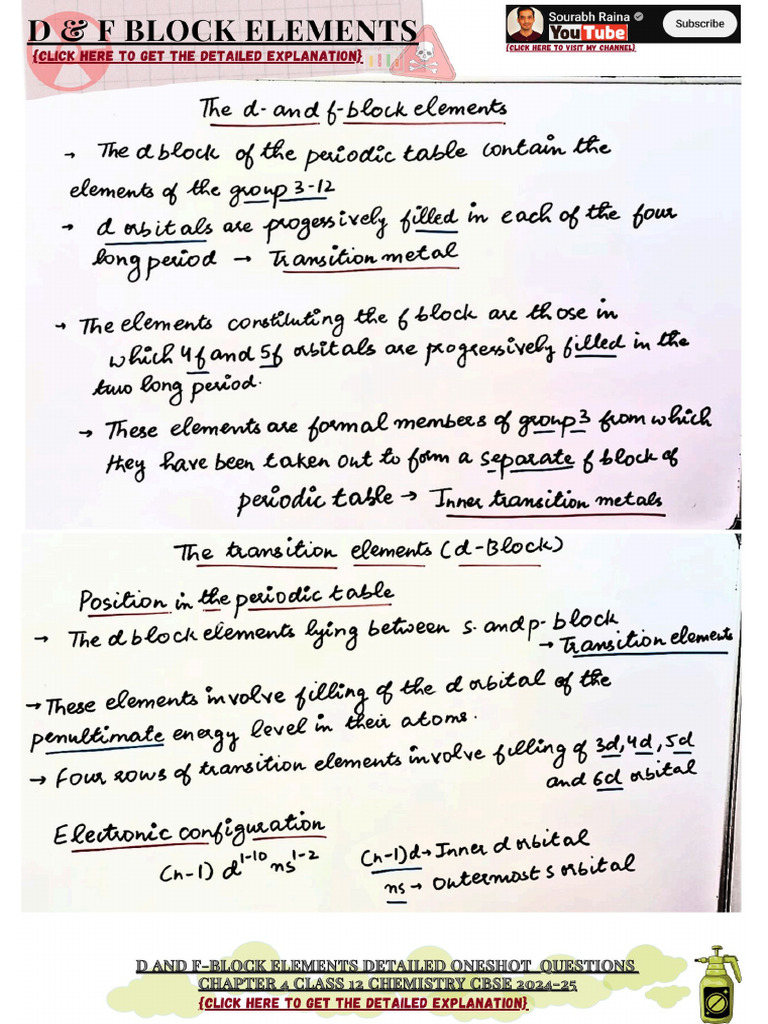 D & F BLOCK ELEMENTS
{CLICK HERE TO GET THE DETAILED EXPLANATION}
Sourabh Raina
YouTube
Subscribe
{CLICK HERE TO VISIT MY CHANNEL}
The d- and f-block elements
→ The d block of the periodic table contain the
elements of the group 3-12
→ d orbitals are progressively filled in each of the four
long period → Transition metal
→ The elements constituting the f block are those in
which 4f and 5f orbitals are progressively filled in the
two long period.
→ These elements are formal members of group 3 from which
they have been taken out to form a separate f block of
periodic table → Inner transition metals
The transition elements (d-Block)
Position in the periodic table
→ The d block elements lying between s- and p-block
→ Transition elements
→ These elements involve filling of the d orbital of the
penultimate energy level in their atoms.
→ Four rows of transition elements involve filling of 3d, 4d, 5d
and 6d orbital
Electronic configuration
(n-1) d¹⁻¹⁰ ns¹⁻² (n-1)d → Inner d orbital
ns → Outermost s orbital
D AND F-BLOCK ELEMENTS DETAILED ONESHOT QUESTIONS
CHAPTER 4 CLASS 12 CHEMISTRY CBSE 2024-25
{CLICK HERE TO GET THE DETAILED EXPLANATION}